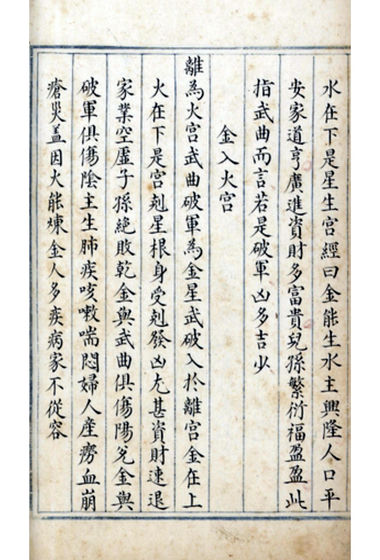 水在下是星生宮經曰金能生水主興隆人口平
安家道亨廣進資財多富貴兒孫繁衍福盈盈此
指武曲而言若是破軍凶多吉少
金入火宮
離為火宮武曲破軍為金星武破入於離宮金在上
火在下是宮剋星根身受剋發凶尤甚資財速退
家業空虛子孫絶敗乾金與武曲俱傷陽兌金與
破軍俱傷陰主生肺疾咳嗽喘悶婦人産癆血崩
瘡災盖因火能煉金人多疾病家不從容